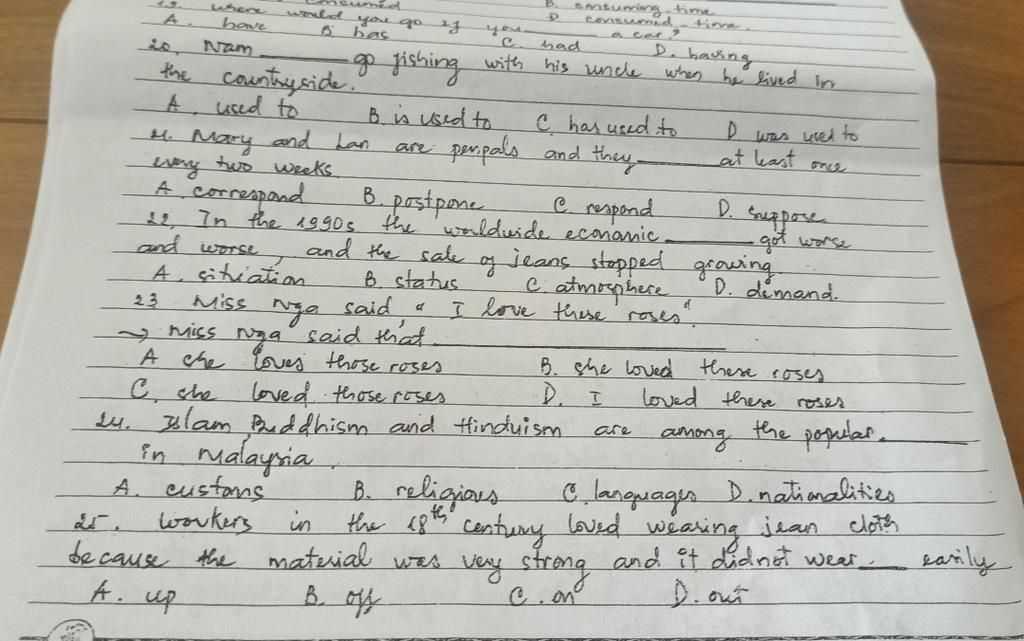 consumed B. consuming-time
D. consumed-time
19. where would you go if you ______ a car?
A. have B has C. had D. having
20. Nam ______ go fishing with his uncle when he lived in
the countryside.
A. used to B is used to C. has used to D was used to
21. Mary and Lan are penpals and they ______ at least once
every two weeks.
A. correspond B. postpone C. respond D. suppose
22. In the 1990s the worldwide economic ______ got worse
and worse, and the sale of jeans stopped growing.
A. sitiation B. status C. atmosphere D. demand.
23 Miss Nga said, "I love these roses"
→ Miss Nga said that ______
A she loves those roses B. she loved these roses
C. she loved those roses D. I loved these roses
24. Islam, Buddhism and Hinduism are among the popular. ______
in Malaysia.
A. customs B. religious C. languages D. nationalities
25. Workers in the 18th century loved wearing jean cloth
because the material was very strong and it didnot wear ___ easily
A. up B. off C. on D. out